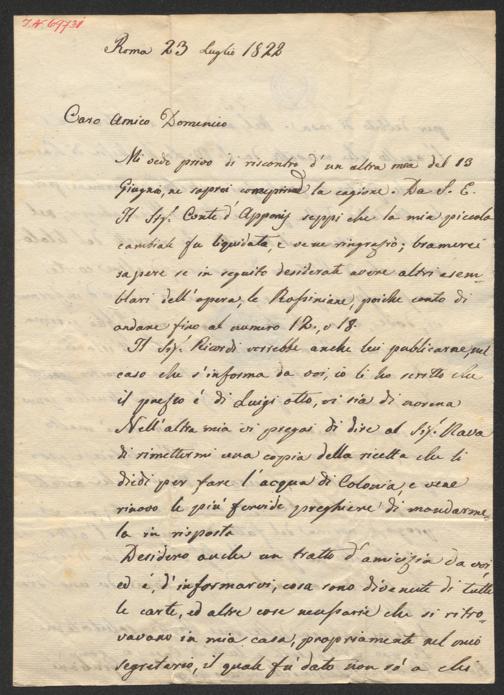 I.N. 69731
Roma 23 Luglio 1822
Caro Amico Domenico
Mi vedo privo di riscontro d'un altra mia del 13
Giugno, ne saprei la cagione. Da S. E.
Il Sig.r Conte d'Appony seppi che la mia piccola
cambiale fu liquidata, e vene ringrazio; bramerei
sapere se in seguito desiderate avere altri esem-
blari dell'opera, le Rossiniane, poiche conto di
andare fino al numero 12., o 18.
Il Sig.r Ricordi vorrebbe anche lui publicarne, nel
caso che s'informa da voi, io li ho scritto che
il prezzo é di Luigi otto, vi sia di norma
Nell'altra mia vi pregai di dire al Sig.r Rava
di rimettermi una copia della ricetta che li
diedi per fare l'acqua di Colonia, e vene
rinovo le piú fervide preghiere di mandarme-
la in risposta
Desidero anche un tratto d'amicizia da voi,
ed é, d'informarvi, cosa sono divenute di tutte
le carte, ed altre cose che si ritro-
vavano in mia casa, propriamente nel mio
segretario, il quale fú dato non só a chi